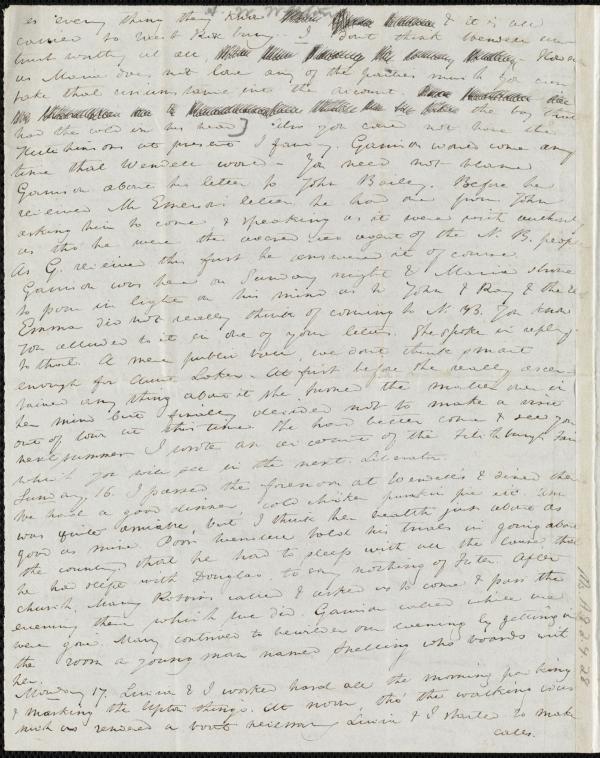 as every thing they know & it is all
carried to West Rox bury. I don't think Wendell un-
trust worthy at all, However
as Maria does not love any of the parties much you can
take that circumstance into the account. the boy
had the cold in his head] Also you can not have the
Hutchinsons at present I fancy. Garrison would come any
time that Wendell would - You need not blame
Garrison about his letter to John Bailey. Before he
received Mr Emerson's letter he had one from John
asking him to come & speaking as it were with authority
as tho' he were the accredited agent of the N. B. people
As G. received this first he answered it of course.
Garrison was here on Sunday night & Maria strove
to pour in light on his mind as to John & Ray & the rest
Emma did not really think of coming to N. B. You know
You alluded to it in one of your letters. She spoke in reply
to that. A mere public ball, we don't think smart
enough for Aunt Loker. At first before she really ascer-
tained any thing about it she turned the matter over in
her mind but finally decided not to make a visit
out of town at this time. She had better come & see you
next summer. I wrote an account of the Fitchburgh Fair
which you will see in the next Liberator.
Sunday 16. I passed the forenoon at Wendell's & dined there
We had a good dinner, cold chicken pumkin pie etc. Ann
was quite amiable, but I think her health just about as
good as mine. Poor Wendell told his trials in going about
the country; that he had to sleep with all the 
he had slept with Douglas. to say nothing of Foster. After
church, Mary Robbins called & asked us to come & pass the
evening there which we did. Garrison called while we
were gone. Mary contrived to bewilder our evening by getting in
the room a young man named Snelling who boards with
her.
Monday 17. Louisa & I worked hard all the morning packing
& marking the Upton things. At noon, tho' the walking was
such as rendered a boat necessary Louisa & I started to make
calls.
Ms. A.9.2.4.28